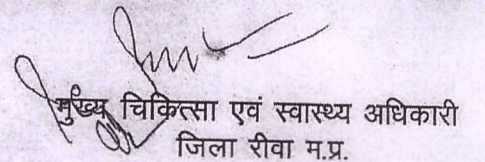 मुख्य चिकित्सा एवं स्वास्थ्य अधिकारी
जिला रीवा म.प्र.